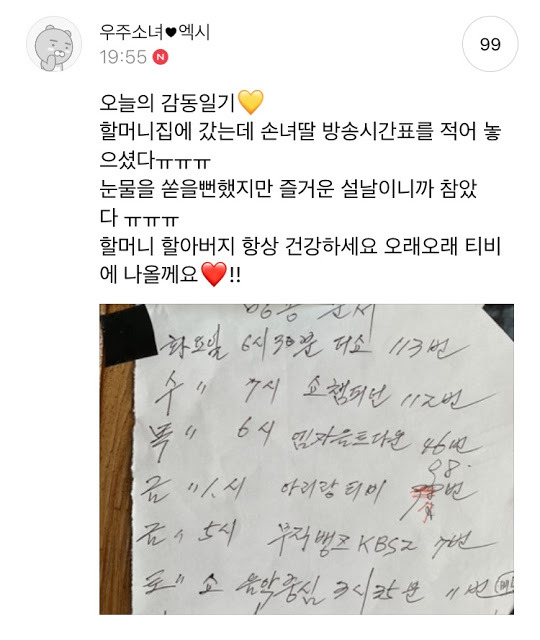 우주소녀♥엑시
19:55 N
99
오늘의 감동일기💛
할머니집에 갔는데 손녀딸 방송시간표를 적어 놓
으셨다ㅠㅠㅠ
눈물을 쏟을뻔했지만 즐거운 설날이니까 참았
다 ㅠㅠㅠ
할머니 할아버지 항상 건강하세요 오래오래 티비
에 나올께요❤️!!
방송 순서
화요일 6시30분 더쇼 113번
수 〃 7시 쇼챔피언 112번
목 〃 6시 엠카운트다운 46번
98.
금 〃 1.시 아리랑티비 번
금 〃 5시 뮤직뱅크 KBS2 7번
토 〃 쇼 음악중심 3시35분 11번